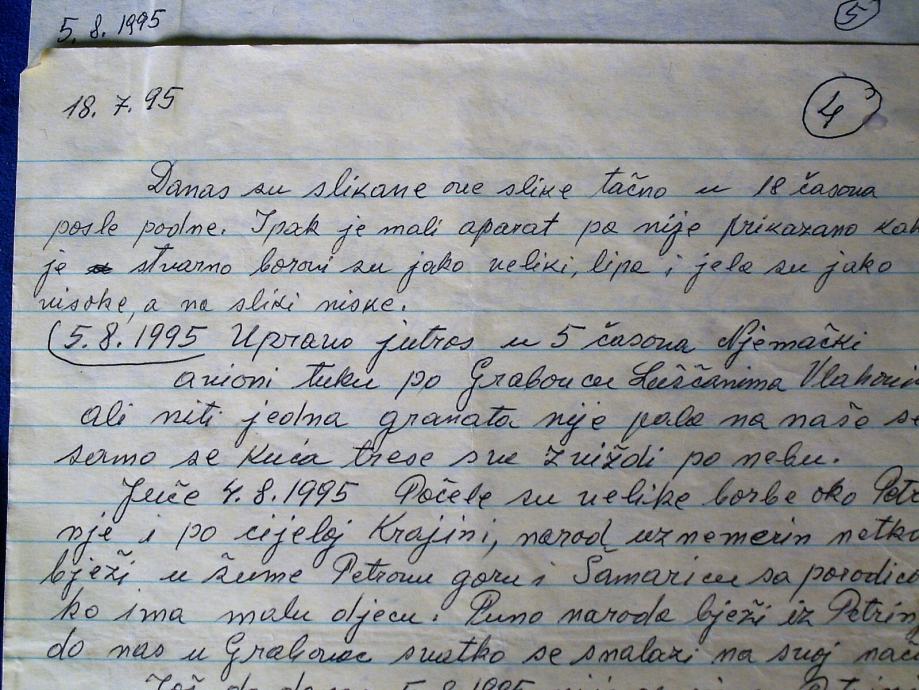 5. 8. 1995
5
18. 7. 95
4
Danas su slikane ove slike tačno u 18 časova
posle podne. Ipak je mali aparat pa nije prikazano kak
je stvarno borovi su jako veliki, lipa i jela su jako
visoke, a na sliki niske.
(5.8.1995 Upravo jutros u 5 časova Njemački
avioni tuku po Grabovcu Luščanima
ali niti jedna granata nije pala na naše se
samo se kuća trese sve zviždi po nebu.
Juče 4.8.1995 Počele su velike borbe oko Petr
nje i po cijeloj Krajini, narod uznemerin netko
bježi u šume Petrovu goru i Šamaricu sa porodico
ko ima malu djecu. Puno naroda bježi iz Petrin
do nas u Grabovac svatko se snalazi na svoj nač